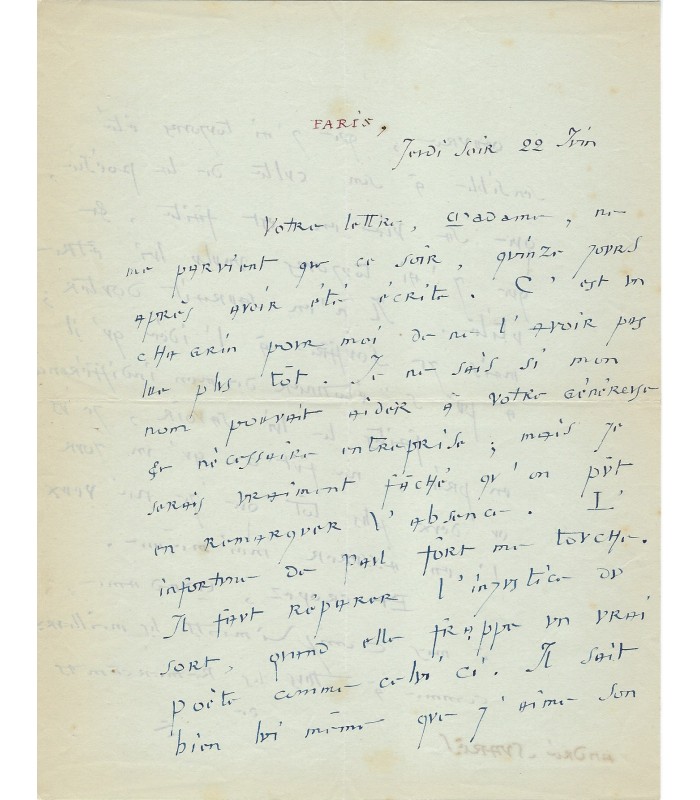 PARIS,
Jeudi soir 22 Juin
Votre lettre, Madame, ne
me parvient que ce soir, quinze jours
après avoir été écrite. C'est un
chagrin pour moi de ne l'avoir pas
lue plus tôt. Je ne sais si mon
nom pouvait aider à votre généreuse
& nécessaire entreprise ; mais je
serais vraiment fâché qu'on pût
en remarquer l'absence. L'
infortune de Paul Fort me touche.
Il faut réparer l'injustice du
sort, quand elle frappe un vrai
poète comme celui ci. Il sait
bien lui même que j'aime son